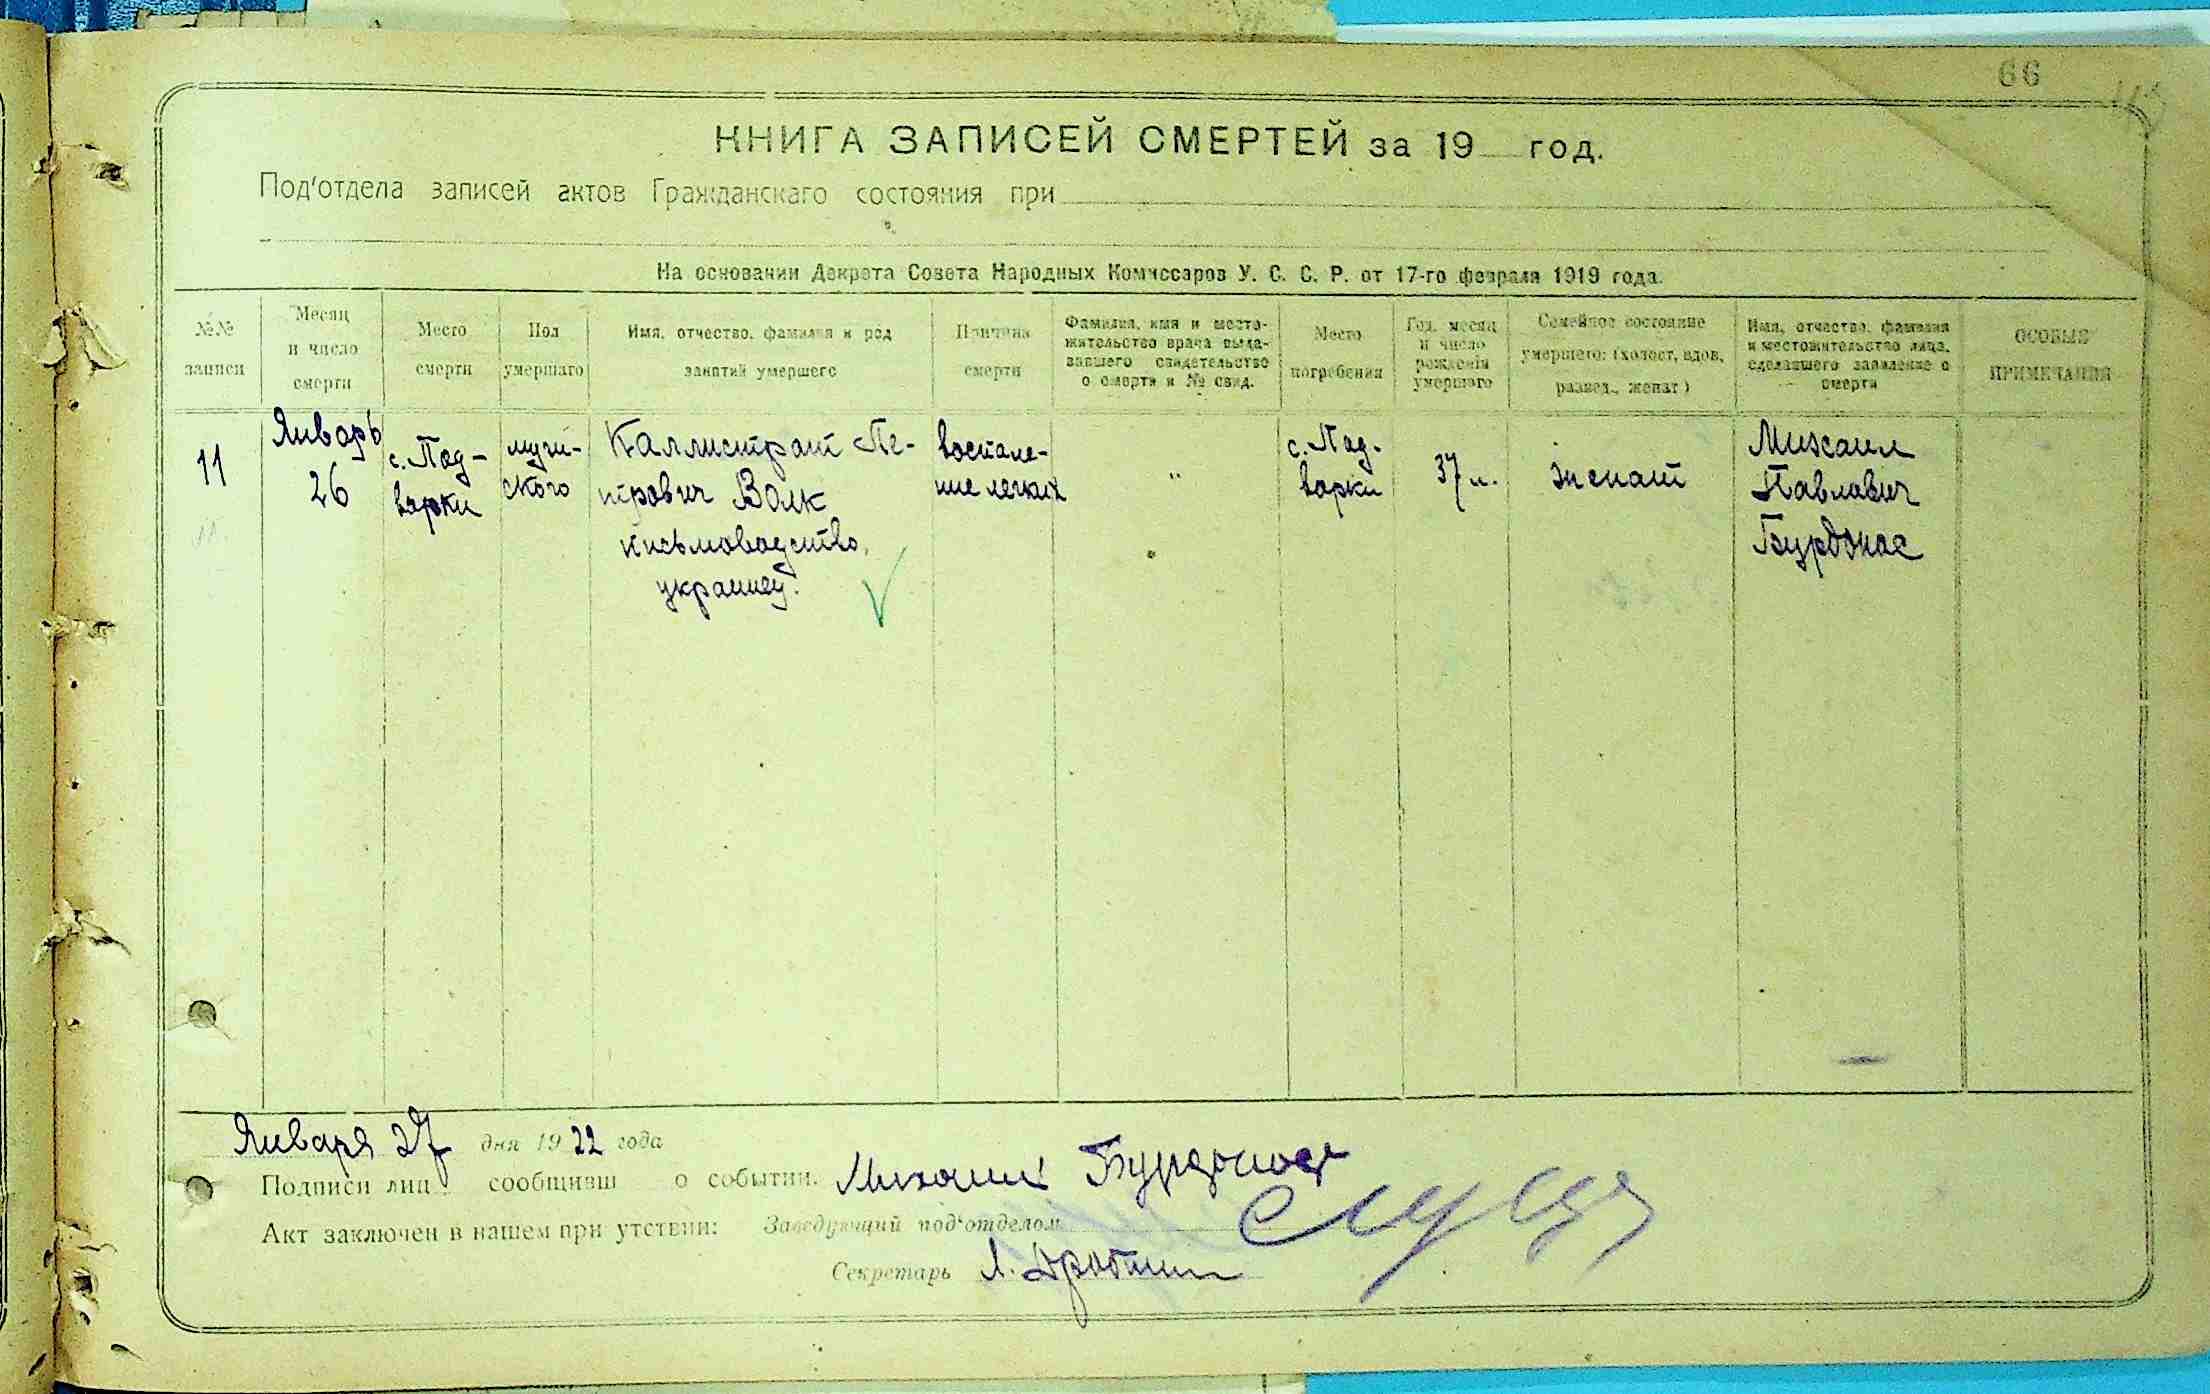 66
КНИГА ЗАПИСЕЙ СМЕРТЕЙ за 19 год.
Под'отдела записей актов Гражданскаго состояния при
На основании Декрета Совета Народных Комиссаров У. С. С. Р. от 17-го февраля 1919 года.
№№
записи
Месяц
и число
смерти
Место
смерти
Пол
умершаго
Имя, отчество, фамилия и род
занятий умершего
Причина
смерти
Фамилия, имя и место-
жительство врача выда-
вавшего свидетельство
о смерти и № свид.
Место
погребения
Год, месяц
и число
рождения
умершего
Семейное состояние
умершего: (холост, вдов,
развед., женат)
Имя, отчество, фамилия
и местожительство лица,
сделавшего заявление о
смерти
ОСОБЫЯ
ПРИМЕЧАНИЯ
11
Январь
26
с. Под-
варки
мужи-
ского
Каллистрат Пе-
трович Волк
письмоводство,
украинец.
воспале-
ние легких
"
с. Под-
варки
37 л.
женат
Михаил
Павлович
Бурдонос
Января 27 дня 1922 года
Подписи лиц сообщивш о событии. Михаил Бурдонос
Акт заключен в нашем при утствии: Заведующий под'отделом
Секретарь